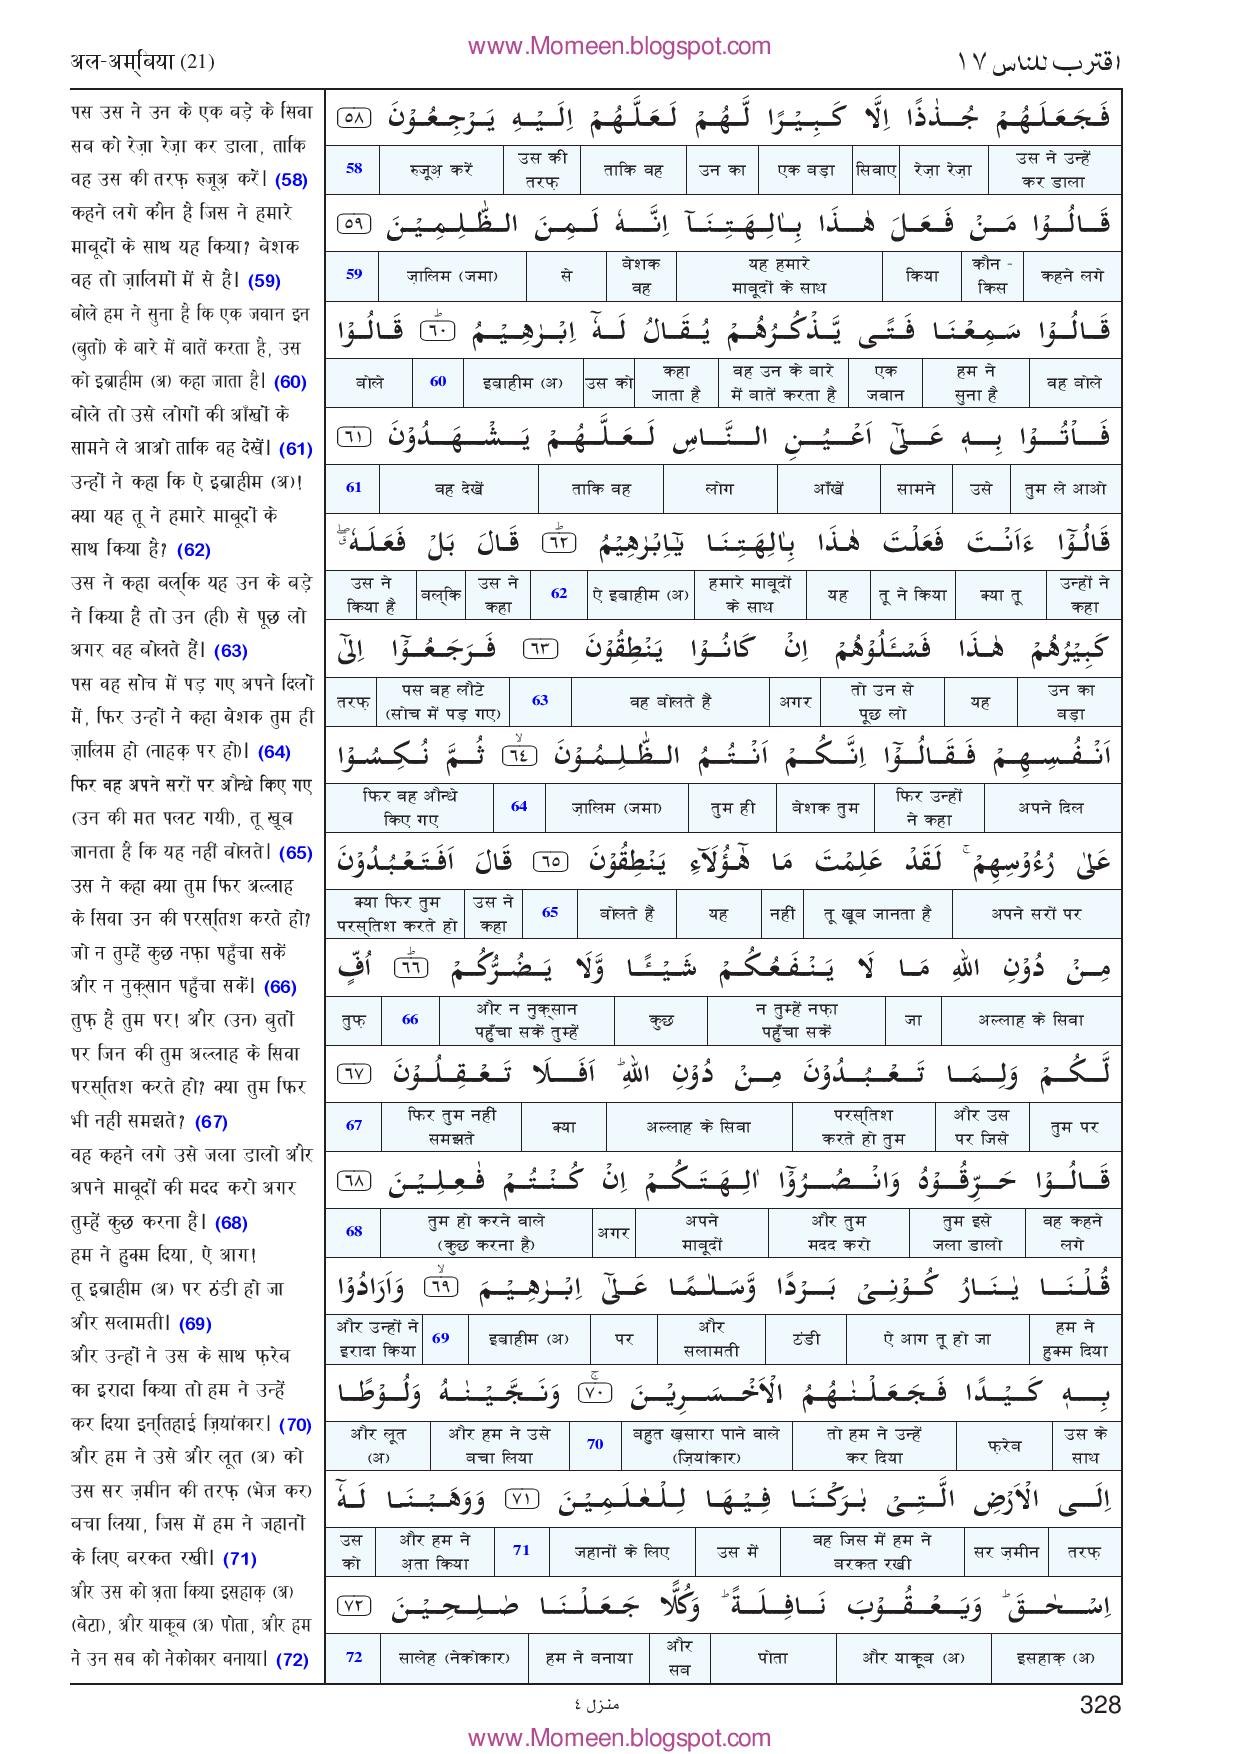 www.Momeen.blogspot.com
अल-अम्बिया (21)
اقترب للناس ١٧
पस उस ने उन के एक बड़े के सिवा
सब को रेज़ा रेज़ा कर डाला, ताकि
वह उस की तरफ़ रुजूअ़ करें। (58)
कहने लगे कौन है जिस ने हमारे
माबूदों के साथ यह किया? बेशक
वह तो ज़ालिमों में से है। (59)
बोले हम ने सुना है कि एक जवान इन
(बुतों) के बारे में बातें करता है, उस
को इब्राहीम (अ) कहा जाता है। (60)
बोले तो उसे लोगों की आँखों के
सामने ले आओ ताकि वह देखें। (61)
उन्हों ने कहा कि ऐ इब्राहीम (अ)!
क्या यह तू ने हमारे माबूदों के
साथ किया है? (62)
उस ने कहा बल्कि यह उन के बड़े
ने किया है तो उन (ही) से पूछ लो
अगर वह बोलते हैं। (63)
पस वह सोच में पड़ गए अपने दिलों
में, फिर उन्हों ने कहा बेशक तुम ही
ज़ालिम हो (नाहक़ पर हो)। (64)
फिर वह अपने सरों पर औन्धे किए गए
(उन की मत पलट गयी), तू खूब
जानता है कि यह नहीं बोलते। (65)
उस ने कहा क्या तुम फिर अल्लाह
के सिवा उन की परस्तिश करते हो?
जो न तुम्हें कुछ नफ़ा पहुँचा सकें
और न नुक़्सान पहुँचा सकें। (66)
तुफ़ है तुम पर! और (उन) बुतों
पर जिन की तुम अल्लाह के सिवा
परस्तिश करते हो? क्या तुम फिर
भी नहीं समझते? (67)
वह कहने लगे उसे जला डालो और
अपने माबूदों की मदद करो अगर
तुम्हें कुछ करना है। (68)
हम ने हुक्म दिया, ऐ आग!
तू इब्राहीम (अ) पर ठंडी हो जा
और सलामती। (69)
और उन्हों ने उस के साथ फ़रेब
का इरादा किया तो हम ने उन्हें
कर दिया इन्तिहाई ज़ियांकार। (70)
और हम ने उसे और लूत (अ) को
उस सर ज़मीन की तरफ़ (भेज कर)
बचा लिया, जिस में हम ने जहानों
के लिए बरकत रखी। (71)
और उस को अ़ता किया इसहाक़ (अ)
(बेटा), और याकूब (अ) पोता, और हम
ने उन सब को नेकोकार बनाया। (72)
فَجَعَلَهُمْ جُذٰذًا اِلَّا كَبِيْرًا لَّهُمْ لَعَلَّهُمْ اِلَيْهِ يَرْجِعُوْنَ ٥٨
उस ने उन्हें कर डाला | रेज़ा रेज़ा | सिवाए | एक बड़ा | उन का | ताकि वह | उस की तरफ़ | रुजूअ़ करें | 58
قَالُوْا مَنْ فَعَلَ هٰذَا بِاٰلِهَتِنَآ اِنَّهٗ لَمِنَ الظّٰلِمِيْنَ ٥٩
कहने लगे | कौन - किस | किया | यह हमारे माबूदों के साथ | बेशक वह | से | ज़ालिम (जमा) | 59
قَالُوْا سَمِعْنَا فَتًى يَّذْكُرُهُمْ يُقَالُ لَهٗٓ اِبْرٰهِيْمُ ؕ ٦٠ قَالُوْا
वह बोले | हम ने सुना है | एक जवान | वह उन के बारे में बातें करता है | कहा जाता है | उस को | इब्राहीम (अ) | 60 | बोले
فَاْتُوْا بِهٖ عَلٰٓى اَعْيُنِ النَّاسِ لَعَلَّهُمْ يَشْهَدُوْنَ ٦١
तुम ले आओ | उसे | सामने | आँखें | लोग | ताकि वह | वह देखें | 61
قَالُوْٓا ءَاَنْتَ فَعَلْتَ هٰذَا بِاٰلِهَتِنَا يٰٓاِبْرٰهِيْمُ ؕ ٦٢ قَالَ بَلْ فَعَلَهٗ ۖۗ
उन्हों ने कहा | क्या तू | तू ने किया | यह | हमारे माबूदों के साथ | ऐ इब्राहीम (अ) | 62 | उस ने कहा | बल्कि | उस ने किया है
كَبِيْرُهُمْ هٰذَا فَسْـَٔلُوْهُمْ اِنْ كَانُوْا يَنْطِقُوْنَ ٦٣ فَرَجَعُوْٓا اِلٰٓى
उन का बड़ा | यह | तो उन से पूछ लो | अगर | वह बोलते हैं | 63 | पस वह लौटे (सोच में पड़ गए) | तरफ़
اَنْفُسِهِمْ فَقَالُوْٓا اِنَّكُمْ اَنْتُمُ الظّٰلِمُوْنَ ۙ ٦٤ ثُمَّ نُكِسُوْا
अपने दिल | फिर उन्हों ने कहा | बेशक तुम | तुम ही | ज़ालिम (जमा) | 64 | फिर वह औन्धे किए गए
عَلٰى رُءُوْسِهِمْ ۚ لَقَدْ عَلِمْتَ مَا هٰٓؤُلَآءِ يَنْطِقُوْنَ ٦٥ قَالَ اَفَتَعْبُدُوْنَ
अपने सरों पर | तू खूब जानता है | नहीं | यह | बोलते हैं | 65 | उस ने कहा | क्या फिर तुम परस्तिश करते हो
مِنْ دُوْنِ اللّٰهِ مَا لَا يَنْفَعُكُمْ شَيْـًٔا وَّلَا يَضُرُّكُمْ ؕ ٦٦ اُفٍّ
अल्लाह के सिवा | जा | न तुम्हें नफ़ा पहुँचा सकें | कुछ | और न नुक़्सान पहुँचा सकें तुम्हें | 66 | तुफ़
لَّكُمْ وَلِمَا تَعْبُدُوْنَ مِنْ دُوْنِ اللّٰهِ ؕ اَفَلَا تَعْقِلُوْنَ ٦٧
तुम पर | और उस पर जिसे | परस्तिश करते हो तुम | अल्लाह के सिवा | क्या | फिर तुम नहीं समझते | 67
قَالُوْا حَرِّقُوْهُ وَانْصُرُوْٓا اٰلِهَتَكُمْ اِنْ كُنْتُمْ فٰعِلِيْنَ ٦٨
वह कहने लगे | तुम इसे जला डालो | और तुम मदद करो | अपने माबूदों | अगर | तुम हो करने वाले (कुछ करना है) | 68
قُلْنَا يٰنَارُ كُوْنِيْ بَرْدًا وَّسَلٰمًا عَلٰٓى اِبْرٰهِيْمَ ۙ ٦٩ وَاَرَادُوْا
हम ने हुक्म दिया | ऐ आग तू हो जा | ठंडी | और सलामती | पर | इब्राहीम (अ) | 69 | और उन्हों ने इरादा किया
بِهٖ كَيْدًا فَجَعَلْنٰهُمُ الْاَخْسَرِيْنَ ۚ ٧٠ وَنَجَّيْنٰهُ وَلُوْطًا
उस के साथ | फ़रेब | तो हम ने उन्हें कर दिया | बहुत ख़सारा पाने वाले (ज़ियांकार) | 70 | और हम ने उसे बचा लिया | और लूत (अ)
اِلَى الْاَرْضِ الَّتِيْ بٰرَكْنَا فِيْهَا لِلْعٰلَمِيْنَ ٧١ وَوَهَبْنَا لَهٗٓ
तरफ़ | सर ज़मीन | वह जिस में हम ने बरकत रखी | उस में | जहानों के लिए | 71 | और हम ने अ़ता किया | उस को
اِسْحٰقَ ؕ وَيَعْقُوْبَ نَافِلَةً ؕ وَكُلًّا جَعَلْنَا صٰلِحِيْنَ ٧٢
इसहाक़ (अ) | और याकूब (अ) | पोता | और सब | हम ने बनाया | सालेह (नेकोकार) | 72
منزل ٤
328
www.Momeen.blogspot.com